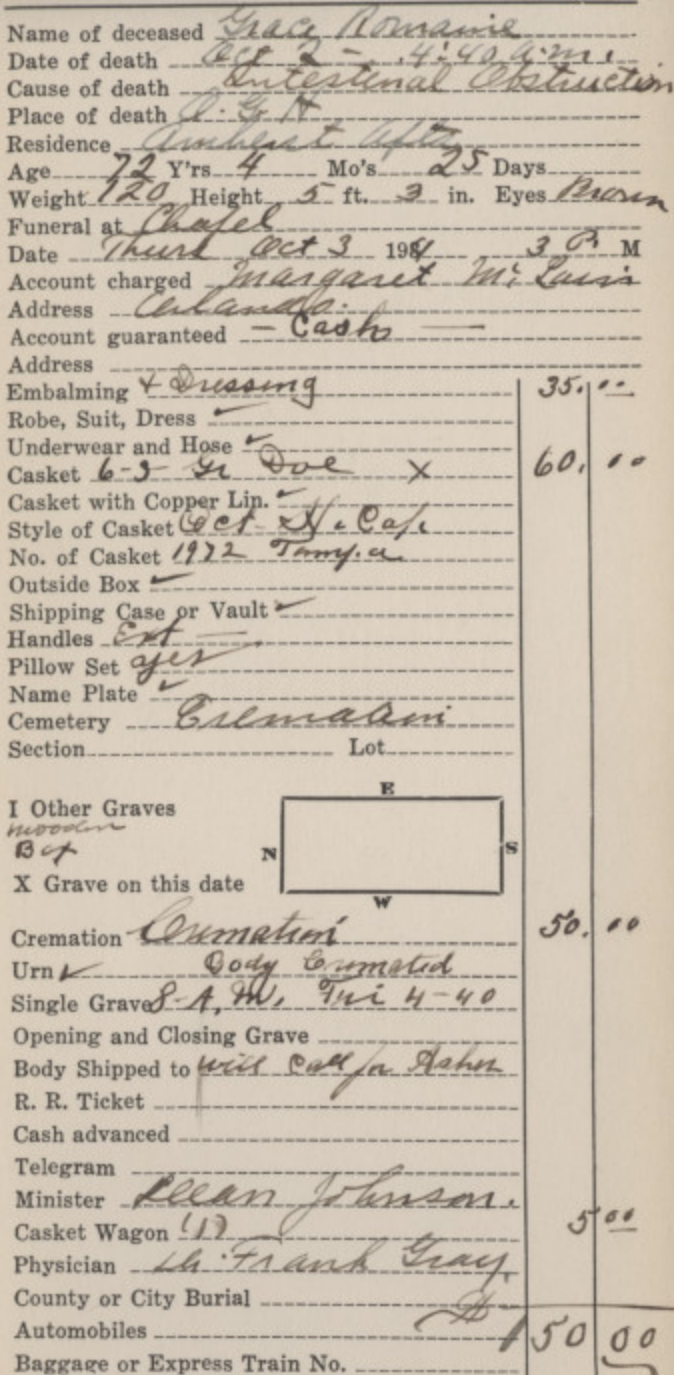 Name of deceased Grace Romaine
Date of death Oct 2 - 4:40 a.m.
Cause of death Intestinal Obstruction
Place of death O. G. H
Residence Amherst Apts
Age 72 Y'rs 4 Mo's 25 Days
Weight 120 Height 5 ft. 3 in. Eyes Brown
Funeral at Chapel
Date Thurs Oct 3 19 3 P. M
Account charged Margaret Mc
Address Orlando.
Account guaranteed - Cash -
Address
Embalming & Dressing 35. 00
Robe, Suit, Dress ✓
Underwear and Hose ✓
Casket 6-3 Gr Doe X 60. 00
Casket with Copper Lin. ✓
Style of Casket Oct
No. of Casket 1972 Tampa
Outside Box ✓
Shipping Case or Vault ✓
Handles Ext
Pillow Set yes
Name Plate ✓
Cemetery Cremation
Section Lot
E
I Other Graves
wooden
Box
N S
X Grave on this date
W
Cremation Cremation 50. 00
Urn ✓ Body Cremated
Single Grave 8-A.M. Fri 4-40
Opening and Closing Grave
Body Shipped to will call for Ashes
R. R. Ticket
Cash advanced
Telegram
Minister Dean Johnson.
Casket Wagon (1) 5 00
Physician Dr. Frank Gray
County or City Burial
Automobiles 150 00
Baggage or Express Train No.